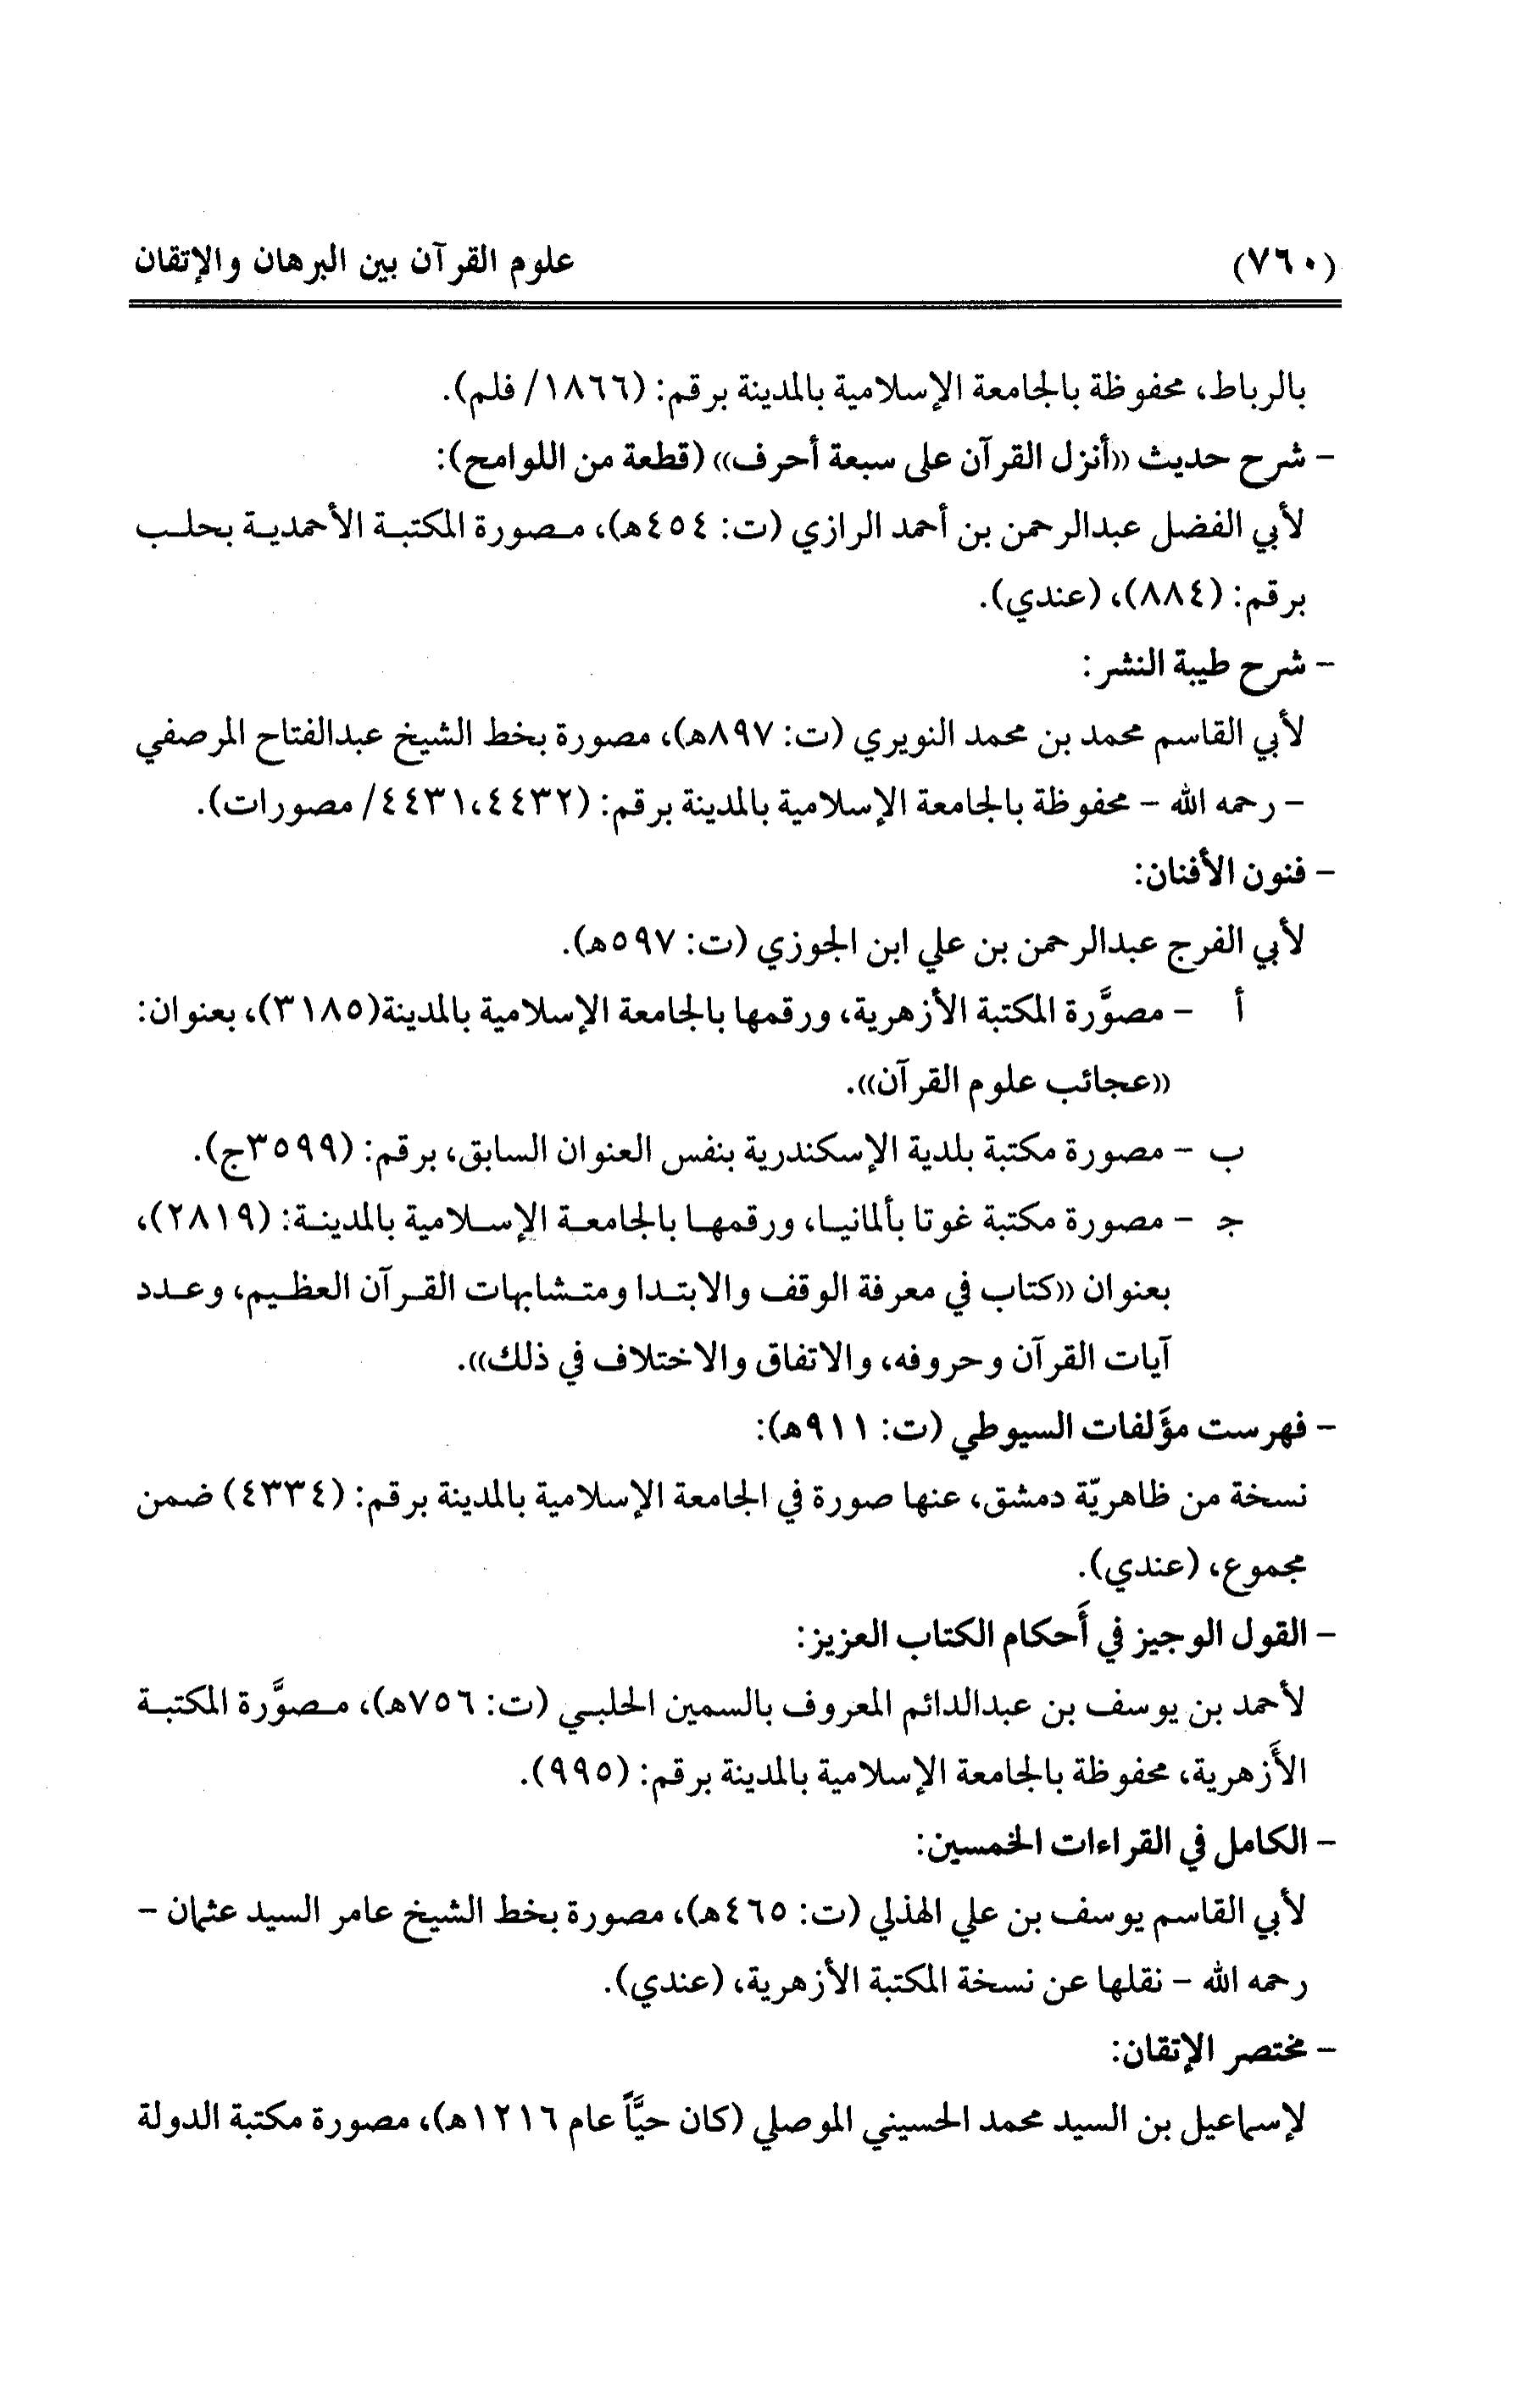 (٧٦٠) علوم القرآن بين البرهان والإتقان
بالرباط، محفوظة بالجامعة الإسلامية بالمدينة برقم: (١٨٦٦/ فلم).
- شرح حديث «أنزل القرآن على سبعة أحرف» (قطعة من اللوامح):
لأبي الفضل عبدالرحمن بن أحمد الرازي (ت: ٤٥٤هـ)، مصورة المكتبة الأحمدية بحلب
برقم: (٨٨٤)، (عندي).
- شرح طيبة النشر:
لأبي القاسم محمد بن محمد النويري (ت: ٨٩٧هـ)، مصورة بخط الشيخ عبدالفتاح المرصفي
- رحمه الله - محفوظة بالجامعة الإسلامية بالمدينة برقم: (٤٤٣١،٤٤٣٢/ مصورات).
- فنون الأفنان:
لأبي الفرج عبدالرحمن بن علي ابن الجوزي (ت: ٥٩٧هـ).
أ - مصوَّرة المكتبة الأزهرية، ورقمها بالجامعة الإسلامية بالمدينة(٣١٨٥)، بعنوان:
«عجائب علوم القرآن».
ب - مصورة مكتبة بلدية الإسكندرية بنفس العنوان السابق، برقم: (٣٥٩٩ج).
جـ - مصورة مكتبة غوتا بألمانيا، ورقمها بالجامعة الإسلامية بالمدينة: (٢٨١٩)،
بعنوان «كتاب في معرفة الوقف والابتدا ومتشابهات القرآن العظيم، وعدد
آيات القرآن وحروفه، والاتفاق والاختلاف في ذلك».
- فهرست مؤلفات السيوطي (ت: ٩١١هـ):
نسخة من ظاهريّة دمشق، عنها صورة في الجامعة الإسلامية بالمدينة برقم: (٤٣٣٤) ضمن
مجموع، (عندي).
- القول الوجيز في أَحكام الكتاب العزيز:
لأحمد بن يوسف بن عبدالدائم المعروف بالسمين الحلبي (ت: ٧٥٦هـ)، مصوَّرة المكتبة
الأَزهرية، محفوظة بالجامعة الإسلامية بالمدينة برقم: (٩٩٥).
- الكامل في القراءات الخمسين:
لأبي القاسم يوسف بن علي الهذلي (ت: ٤٦٥هـ)، مصورة بخط الشيخ عامر السيد عثمان -
رحمه الله - نقلها عن نسخة المكتبة الأزهرية، (عندي).
- مختصر الإتقان:
لإسماعيل بن السيد محمد الحسيني الموصلي (كان حيًّا عام ١٢١٦هـ)، مصورة مكتبة الدولة